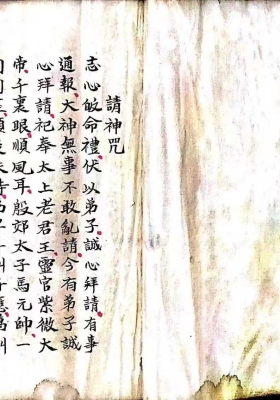 請神咒
志心皈命禮伏以弟子誠心拜請有事
通報大神無事不敢亂請今有弟子誠
心拜請祀奉太上老君王靈官紫微大
帝千裏眼順風耳殷郊太子馬元帥一